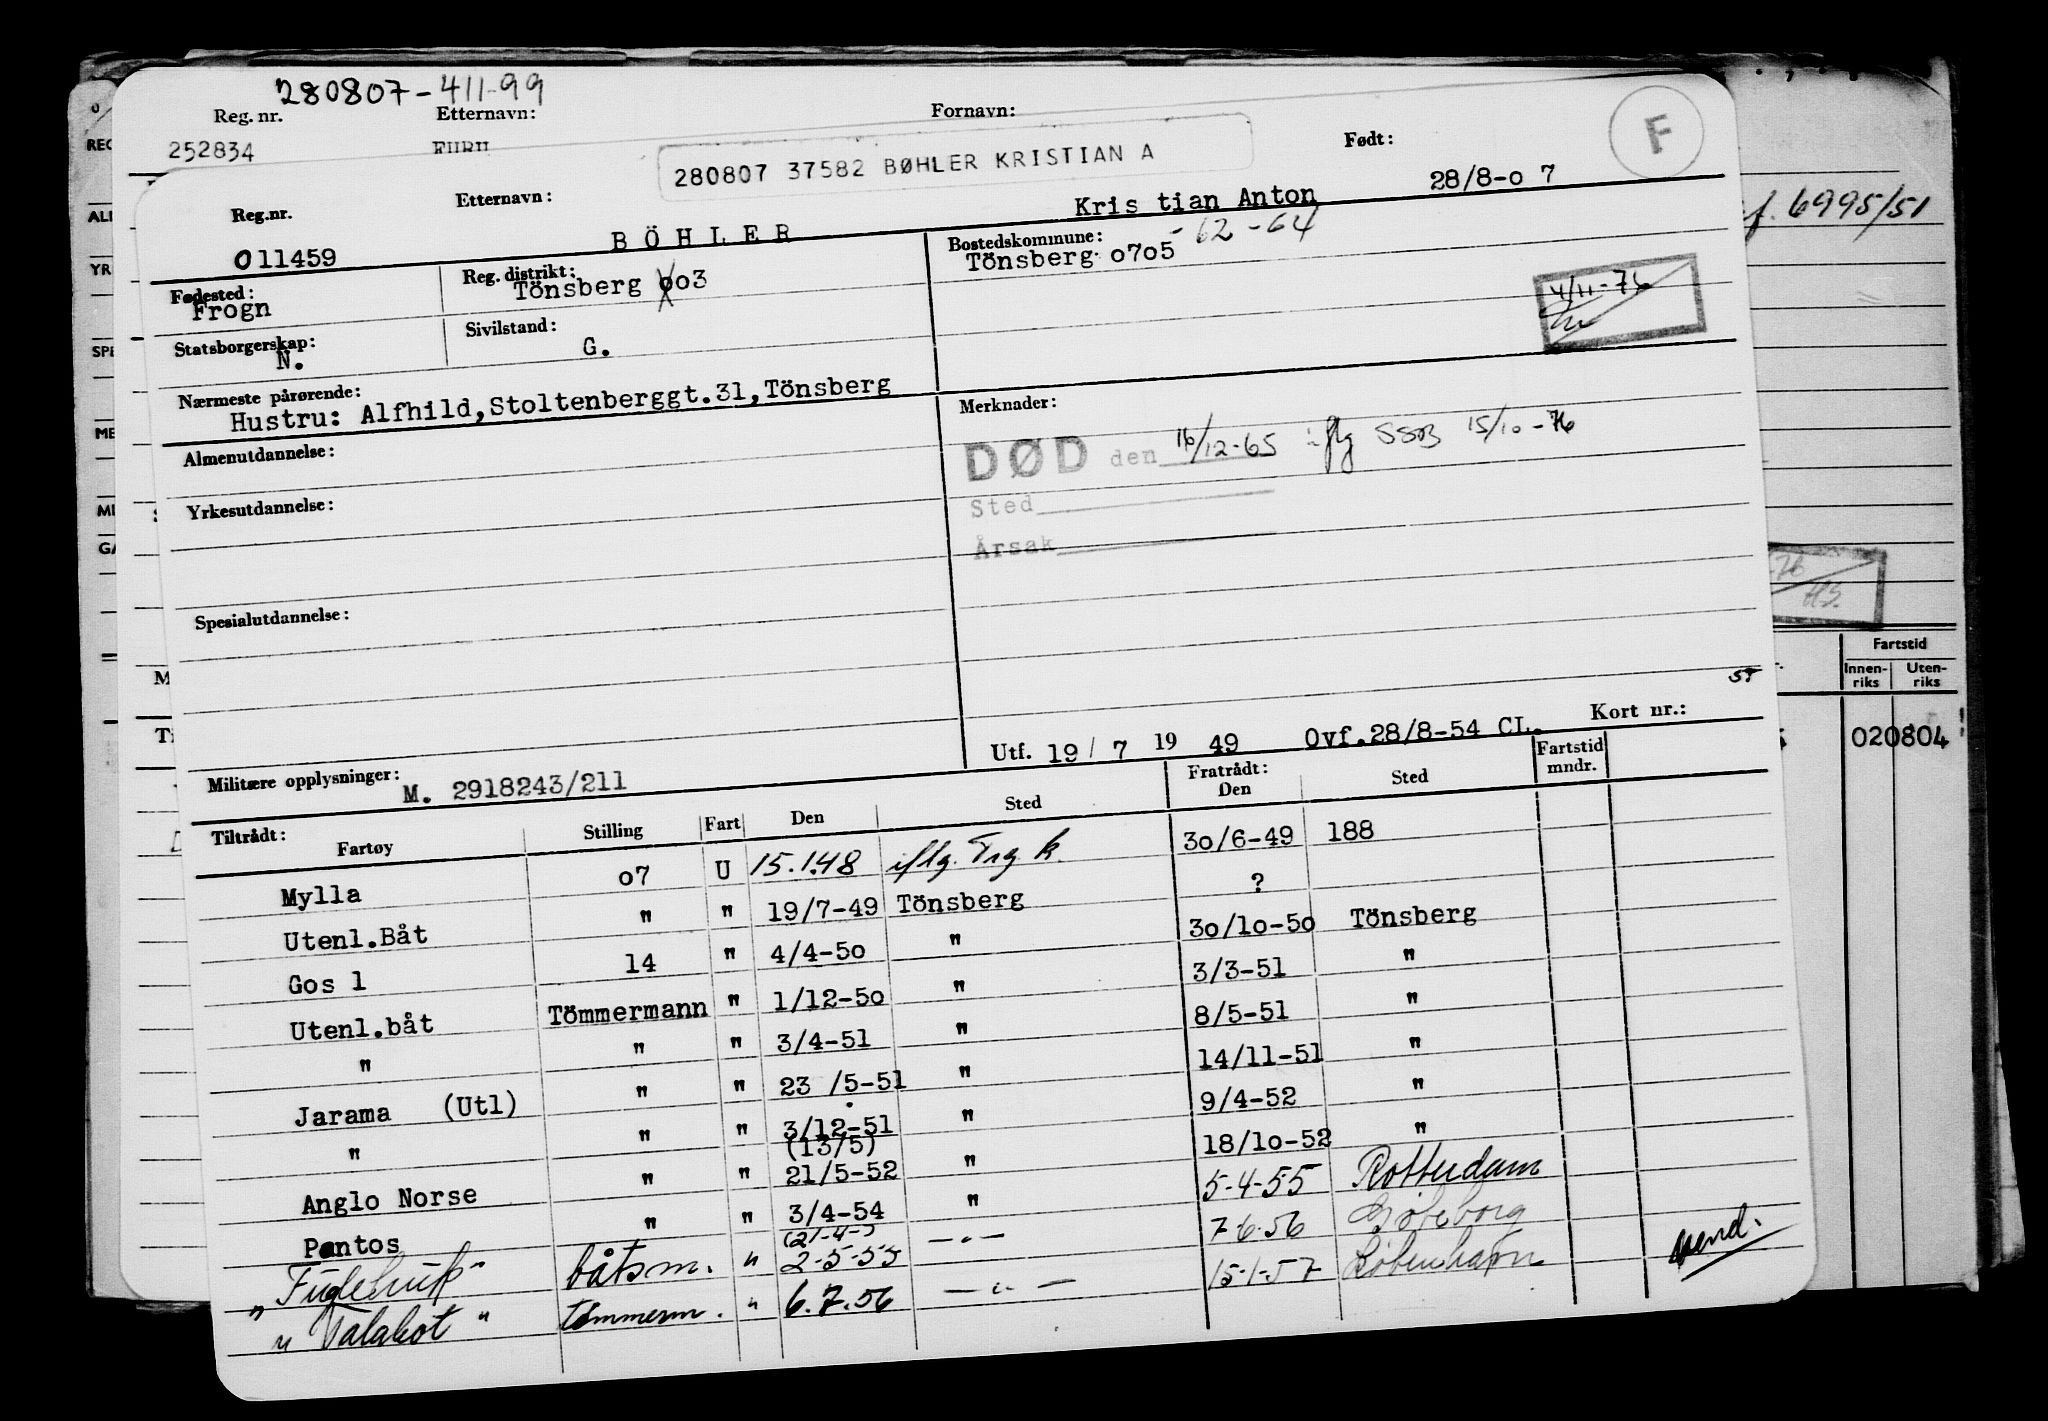 280807-411-99
Reg. nr. Etternavn: Fornavn: Født: F
252834
280807 37582 BØHLER KRISTIAN A
Reg.nr. Etternavn: Kris tian Anton 28/8-o 7
011459 BÖHLER
Fødested: Frogn
Reg. distrikt: Tönsberg 003
Bostedskommune: Tönsberg 0705 -62-64
4/11-76
Statsborgerskap: N.
Sivilstand: G.
Nærmeste pårørende:
Hustru: Alfhild,Stoltenberggt.31,Tönsberg
Merknader:
DØD den 16/12-65 iflg SSB 15/10-76
Sted
Årsak
Almenutdannelse:
Yrkesutdannelse:
Spesialutdannelse:
Utf. 19/ 7 19 49 Ovf.28/8-54 CL. Kort nr.:
Militære opplysninger: M. 2918243/211
Tiltrådt: Fartøy Stilling Fart Den Sted Fratrådt: Den Sted Fartstid mndr.
Mylla 07 U 15.1.48 iflg. Trg k. 30/6-49 188
Utenl.Båt " " 19/7-49 Tönsberg ?
Gos 1 14 " 4/4-50 " 30/10-50 Tönsberg
Utenl.båt Tömmermann " 1/12-50 " 3/3-51 "
" " " 3/4-51 " 8/5-51 "
Jarama (Utl) " " 23 /5-51 " 14/11-51 "
" " " 3/12-51 " 9/4-52 "
(13/5)
Anglo Norse " " 21/5-52 " 18/10-52 "
Pontos " " 3/4-54 " 5-4-55 Rotterdam
båtsm. " 2-5-55 -"- 7-6-56 Gøteborg
" Talabot " tømmerm. " 6.7.56 -"- 15-1-57 København
vend.
f. 6995/51
Fartstid
Innen-riks Uten-riks
020804